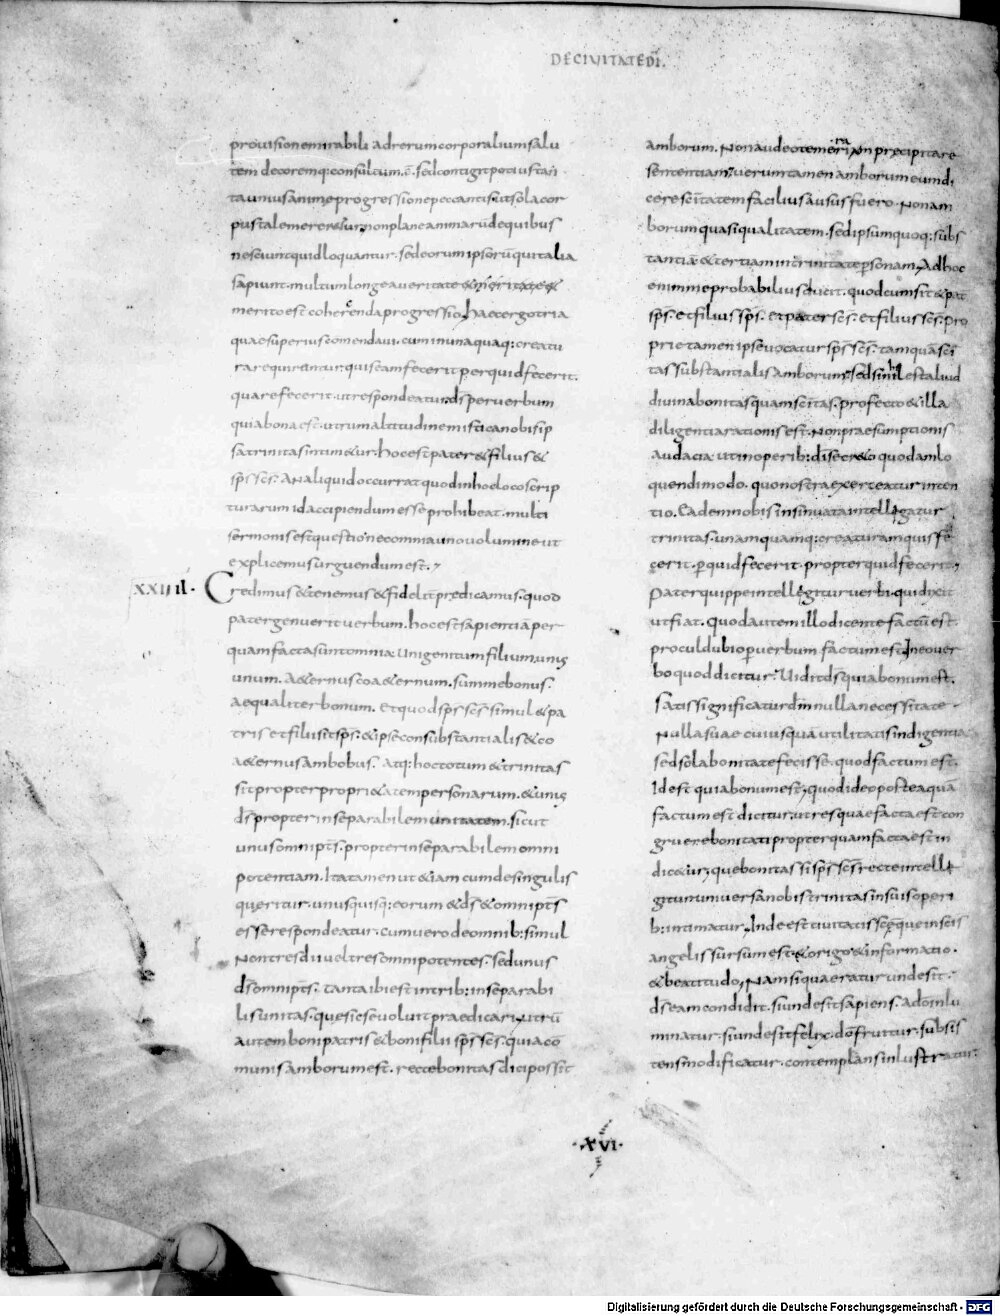 DE CIUITATE DI.
prouisione mirabili ad rerum corporalium salu
tem decoremq: consultum. ē. sed contigit potius tan
ta unius anime progressione peccantis ut sola cor
pus tale mereretur non plane animarū de quibus
nesciunt quid loquantur. sed eorum ipsorū qui talia
sapiunt. multum longe a ueritate &
merito est cohercenda progressio. Haec ergo tria
quae superius commendaui. cum in unaquaq: creatu
ra requirentur. quis eam fecerit per quid fecerit.
quare fecerit. ut respondeatur. ds per uerbum
quia bona est. utrum altitudine mistica nobis ip
sa trinitas intim&ur. hoc est pater & filius &
sps scs. An aliquid occurrat quod in hoc loco scrip
turarum id accipiendum esse prohibeat. multi
sermonis est questio nec omnia uno uolumine ut
explicemus urguendum est.
XXIIII. Credimus & tenemus & fidelit̄ predicamus. quod
pater genuerit uerbum. hoc est sapientiā per
quam facta sunt omnia. Unigenitum filium. unus
unum. A&ernus coa&ernum. summe bonus.
aequaliter bonum. Et quod sps scs simul & pa
tris et filii sit sps. & ipse consubstantialis & co
a&ernus ambobus. Atq: hoc totum & trinitas
sit propter propri&atem personarum. & unus
ds propter inseparabilem unitatem. sicut
unus omnipts. propter inseparabilem omni
potentiam. Ita tamen ut &iam cum de singulis
queritur. unusquisq: eorum & ds & omnipts
esse respondeatur. cum uero de omnib: simul
Non tres dii uel tres omnipotentes. sed unus
ds omnipts. tanta ibi est in trib: inseparabi
lis unitas. que sic se uoluit praedicari. utrū
autem boni patris & boni filii sps scs. quia co
munis amborum est. recte bonitas dici possit
amborum. Non audeo temerariā precipitare
sententiam. uerum tamen amborum eum di
cere scītatem facilius ausus fuero. Non am
borum quasi qualitatem. sed ipsum quoq: subs
tantiā & tertiam in trinitate personam. Ad hoc
enim me probabilius ducit. quod cum sit & pat̄
sps. et filius sps. et pater scs. et filius scs. pro
prie tamen ipse uocatur sps scs. tamquā sci
tas substantialis amborum. sed si nihil est aliud
diuina bonitas quam scitas. profecto & illa
diligentia rationis est. Non praesumptionis
audacia. ut in operib: di secr&o quodam lo
quendi modo. quo nostra exerceatur inten
tio. Eadem nobis insinuata intellegatur
trinitas. unam quamq: creaturam quis fe
cerit. per quid fecerit. propter quid fecerit.
Pater quippe intellegitur uerbi. qui dixit
ut fiat. quod autem illo dicente factū est.
procul dubio per uerbum factum est. In eo uer
bo quod dicitur. Uidit ds quia bonum est.
Satis significatur dm nulla necessitate.
Nulla suae cuiusquā utilitatis indigentia
sed sola bonitate fecisse. quod factum est.
Id est quia bonum est. quod ideo postea quā
factum est dicitur. ut res quae facta est con
gruere bonitati propter quam facta est in
dic&ur. que bonitas si sps scs recte intelle
gitur. uniuersa nobis trinitas in suis operi
b: intimatur. Inde est ciuitatis sce que in scis
angelis sursum est. & origo & informatio.
& beatitudo. Nam si quaeratur unde sit.
ds eam condidit. si unde sit sapiens. A do inlu
minatur. si unde sit felix. do fruitur. subsis
tens modificatur. contemplans inlustratur.
XVI.
Digitalisierung gefördert durch die Deutsche Forschungsgemeinschaft - DFG